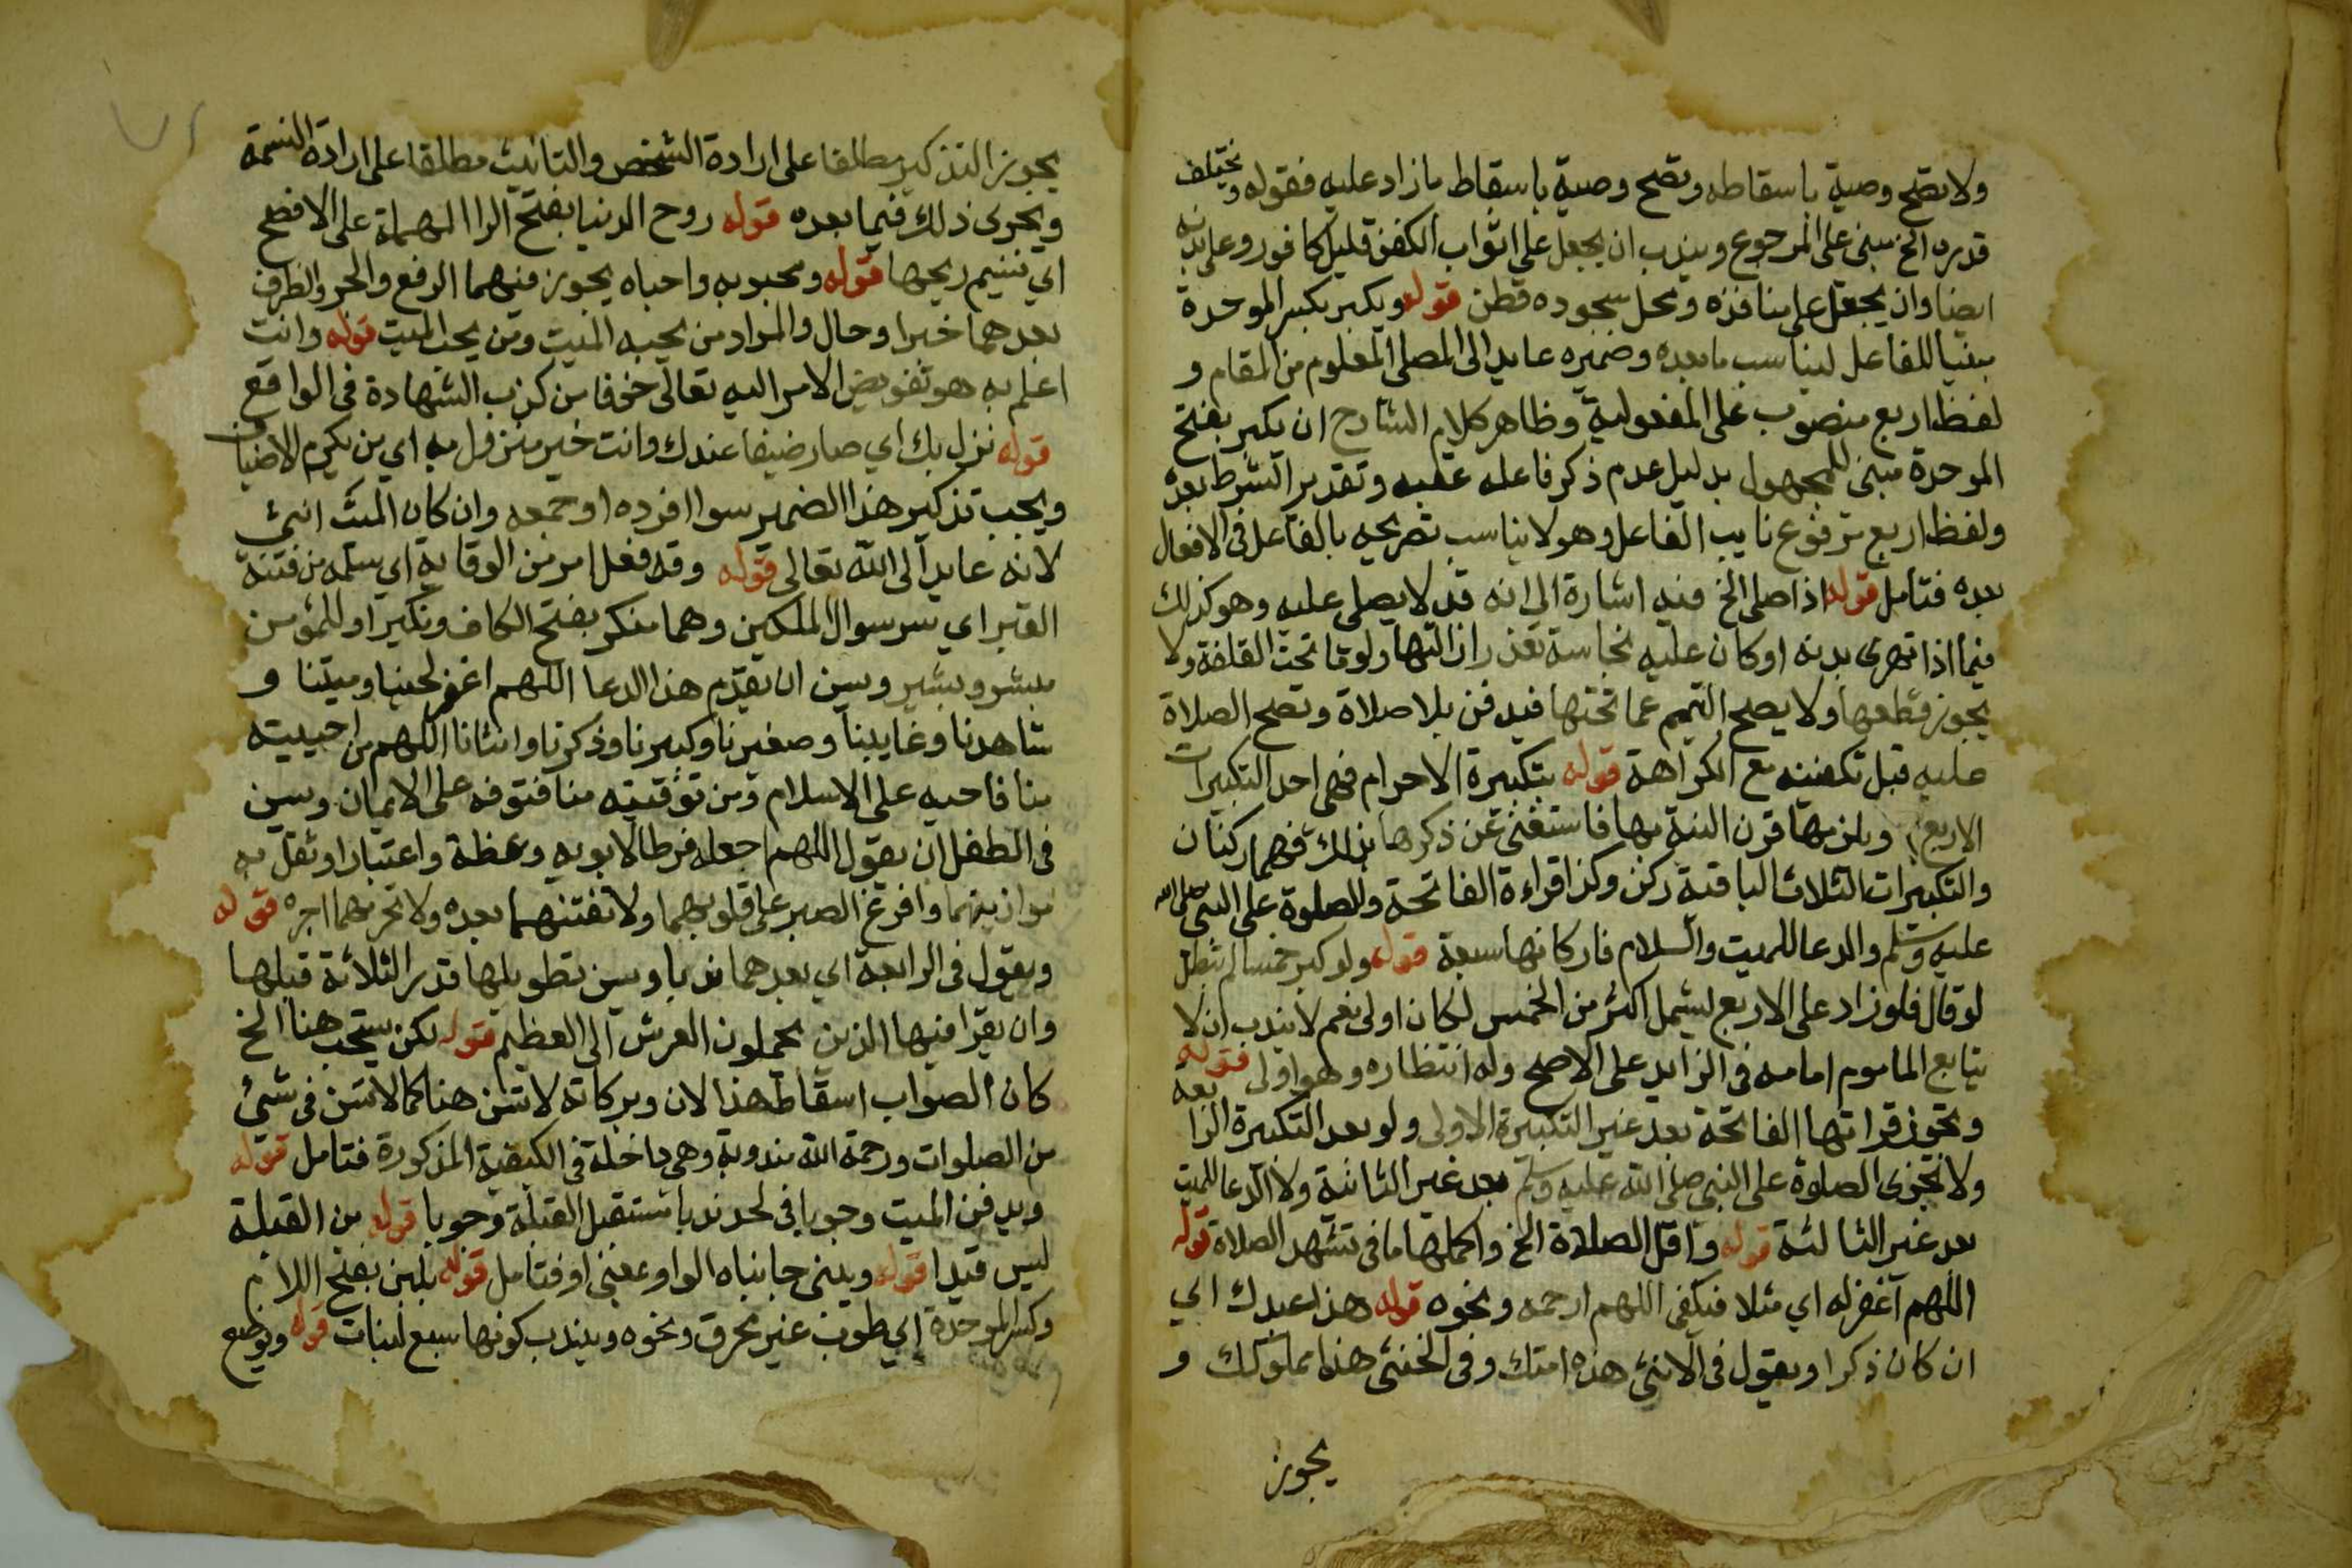 ولا تصح وصية باسقاطه وتصح وصية باسقاط مازاد عليه فقوله ويختلف
قدره الخ مبنى على المرجوع ويندب ان يجعل على اثواب الكفن قليل كافور وعلى بدنه
ايضا وان يجعل على منافذه ومحل سجوده قطن قوله ويكبر بكسر الموحدة
مبنيا للفاعل ليناسب ما بعده وضميره عايد الى المصلى المعلوم من المقام و
لفظ اربع منصوب على المفعولية وظاهر كلام الشارح ان يكبر بفتح
الموحدة مبنى للمجهول بدليل عدم ذكر فاعله عقبه وتقدير الشرط بعده
ولفظ اربع مرفوع نايب الفاعل وهو لا يناسب تصريحه بالفاعل فى الافعال
بعده فتامل قوله اذا صلى الخ فيه اشارة الى انه قد لا يصلى عليه وهو كذلك
فيما اذا تهرى بدنه او كان عليه نجاسة تعذر ازالتها ولو ما تحت القلفة ولا
يجوز قطعها ولا يصح التيمم عما تحتها فيدفن بلا صلاة وتصح الصلاة
عليه قبل تكفينه مع الكراهة قوله بتكبيرة الاحرام فهى احد التكبيرات
الاربع ويلزمها قرن النية بها فاستغنى عن ذكرها بذلك فهما ركنان
والتكبيرات الثلاث الباقية ركن وكذا قراءة الفاتحة والصلوة على النبى صلى الله
عليه وسلم والدعا للميت والسلام فاركانها سبعة قوله ولو كبر خمسا لم تبطل
لو قال فلو زاد على الاربع ليشمل اكثر من الخمس لكان اولى نعم لا يندب ان لا
يتابع الماموم امامه فى الزايد على الاصح وله انتظاره وهو اولى قوله
وتجوز قراتها الفاتحة بعد غير التكبيرة الاولى ولو بعد التكبيرة الرابعة
ولا تجزى الصلوة على النبى صلى الله عليه وسلم بعد غير الثانية ولا الدعا للميت
بعد غير الثالثة قوله واقل الصلاة الخ واكملها ما فى تشهد الصلاة قوله
اللهم اغفر له اي مثلا فيكفى اللهم ارحمه ونحوه قوله هذا عبدك اي
ان كان ذكرا ويقول فى الانثى هذه امتك وفى الخنثى هذا مملوكك و
يجوز
يجوز التذكير مطلقا على ارادة الشخص والتانيث مطلقا على ارادة النسمة
ويجرى ذلك فيما بعده قوله روح الدنيا بفتح الرا المهملة على الافصح
اي نسيم ريحها قوله ومحبوبه واحباه يجوز فيهما الرفع والجر والظرف
بعدهما خبر او حال والمراد من يحبه الميت ومن يحب الميت قوله وانت
اعلم به هو تفويض الامر اليه تعالى خوفا من كذب الشهادة فى الواقع
قوله نزل بك اي صار ضيفا عندك وانت خير منزول به اي من يكرم الاضياف
ويجب تذكير هذا الضمير سوا افرده او جمعه وان كان الميت انثى
لانه عايد الى الله تعالى قوله وقه فعل امر من الوقاية اي سلمه من فتنة
القبر اي سر سوال الملكين وهما منكر بفتح الكاف ونكير او للمؤمن
مبشر وبشير ويسن ان يقدم هذا الدعا اللهم اغفر لحينا وميتنا و
شاهدنا وغايبنا وصغيرنا وكبيرنا وذكرنا وانثانا اللهم من احييته
منا فاحيه على الاسلام ومن توفيته منا فتوفه على الايمان ويسن
فى الطفل ان يقول اللهم اجعله فرطا لابويه وعظة واعتبارا وثقل به
موازينهما وافرغ الصبر على قلوبهما ولا تفتنهما بعده ولا تحرمهما اجره قوله
ويقول فى الرابعة اي بعدهما ندبا ويسن تطويلها قدر الثلاثة قبلها
وان يقرا فيها الذين يحملون العرش الى العظيم قوله لكن يستحب هنا الخ
كان الصواب اسقاط هذا لان وبركاته لا تسن هنا كما لا تسن فى شئ
من الصلوات ورحمة الله مندوبة وهى داخلة فى الكيفية المذكورة فتامل قوله
ويدفن الميت وجوبا فى لحد ندبا مستقبل القبلة وجوبا قوله من القبلة
ليس قيدا قوله ويبنى جانباه الواو بمعنى او فتامل قوله بلبن بفتح اللام
وكسر الموحدة اي طوب غير محرق ونحوه ويندب كونها سبع لبنات قوله ويوضع